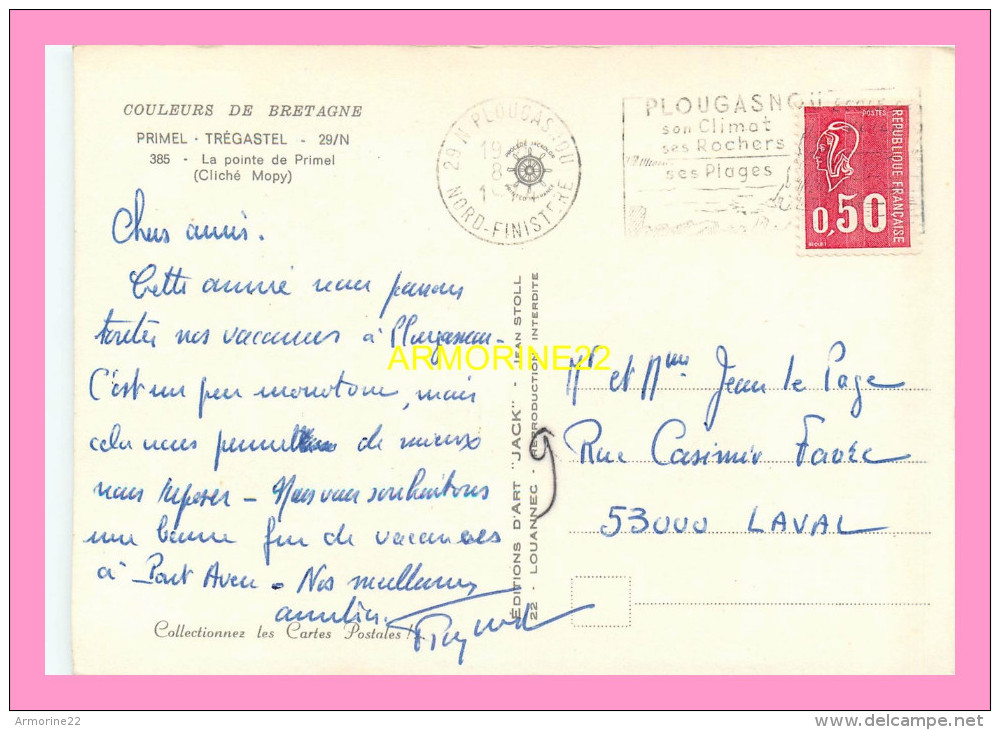 COULEURS DE BRETAGNE
PRIMEL - TRÉGASTEL - 29/N
385 - La pointe de Primel
(Cliché Mopy)
29N PLOUGASNOU
19
8
NORD-FINISTERE
PLOUGASNOU
son Climat
ses Rochers
ses Plages
POSTES
REPUBLIQUE FRANÇAISE
0,50
Chers amis.
Cette année nous passons
toutes nos vacances à Plougasnou.
C'est un peu monotone, mais
cela nous permet de mieux
nous reposer - Nous vous souhaitons
une bonne fin de vacances
à Pont Aven. Nos meilleures
amitiés.
Collectionnez les Cartes Postales !
ÉDITIONS D'ART "JACK" - JEAN STOLL
22 - LOUANNEC - REPRODUCTION INTERDITE
ARMORINE22
Mr et Mme Jean le Page
Rue Casimir Favre
53000 LAVAL
Armorine22
delcampe.net